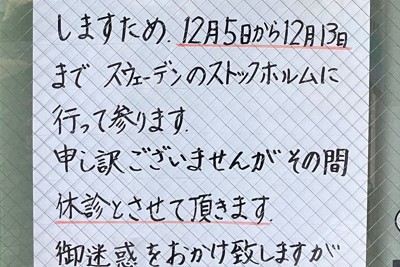 しますため、12月5日から12月13日
まで スウェーデンのストックホルムに
行って参ります.
申し訳ございませんが その間
休診とさせて頂きます.
御迷惑をおかけ致しますが